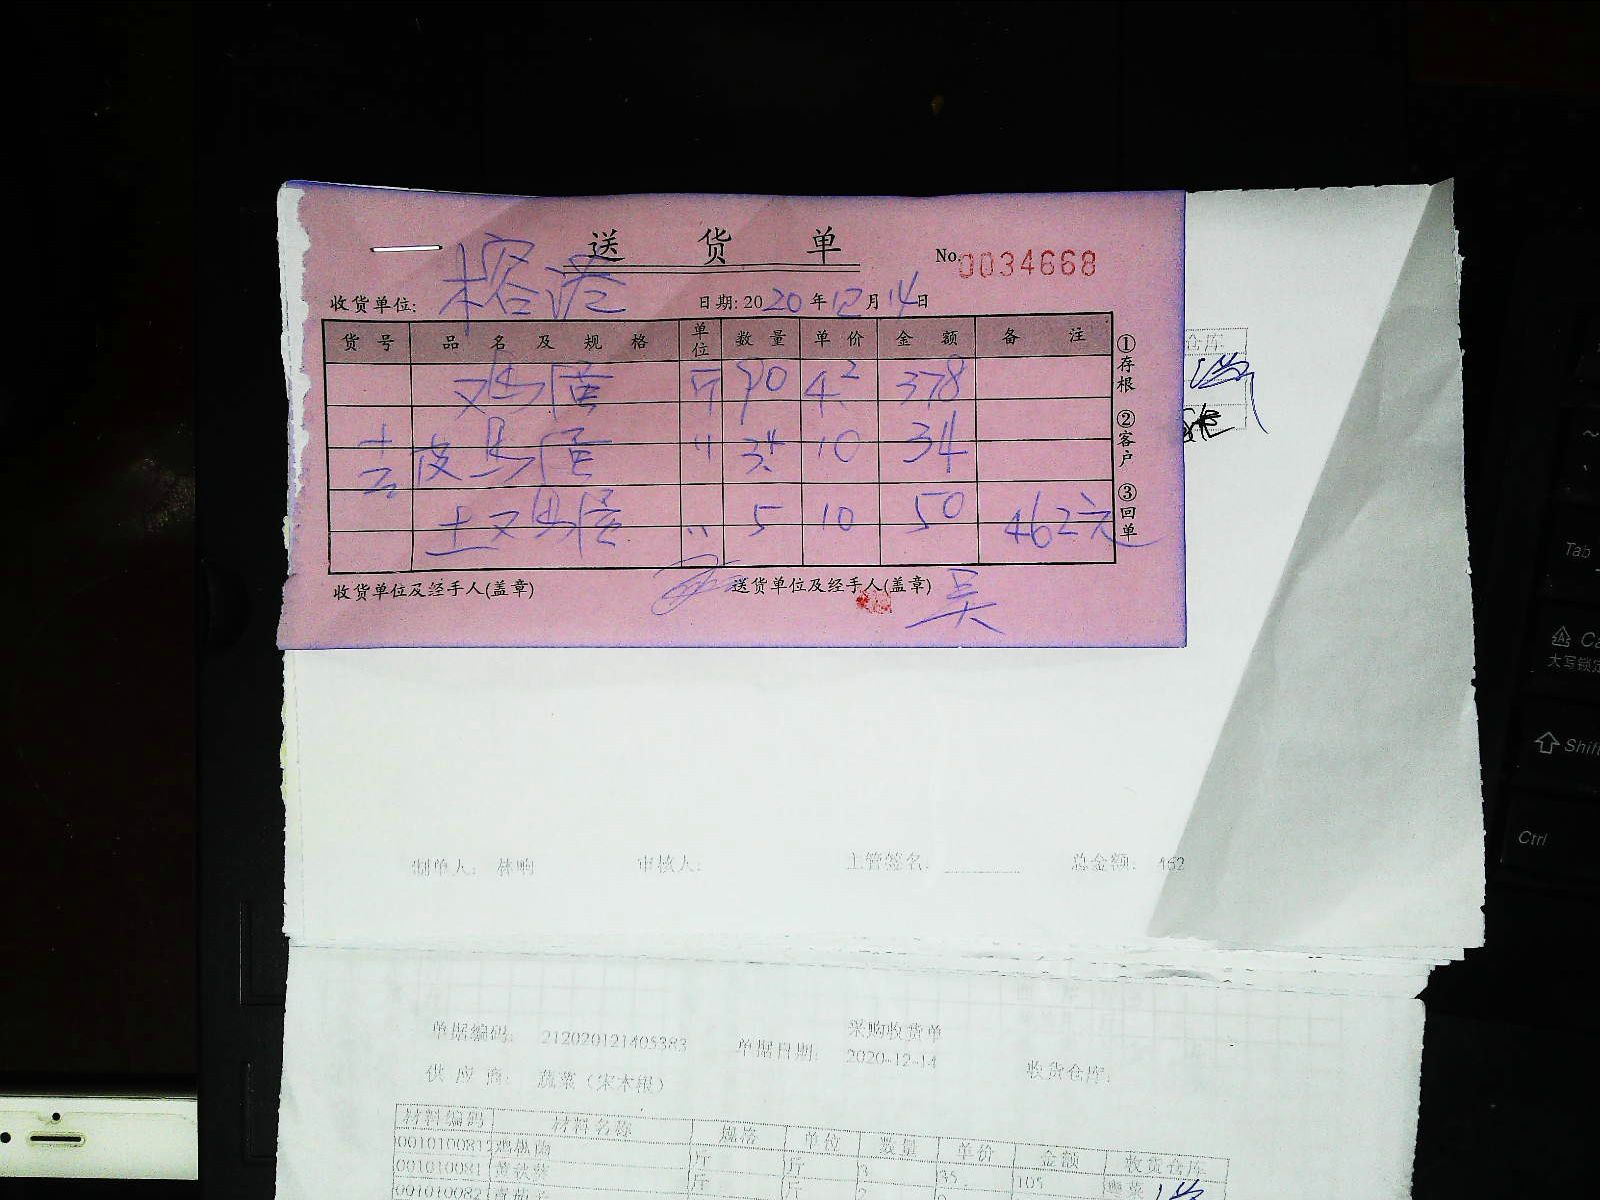 送 货 单
No.0034668
收货单位: 榕港
日期: 2020年12月14日
货号 品名及规格 单位 数量 单价 金额 备注
鸡蛋 斤 90 4.2 378
皮蛋 " 3.4 10 34
土鸡蛋 " 5 10 50 462元
①存根 ②客户 ③回单
收货单位及经手人(盖章) 送货单位及经手人(盖章) 吴
仓库
制单人: 林响 审核人: 主管签名: 总金额: 462
采购收货单
单据编码: 212020121405383 单据日期: 2020-12-14 收货仓库:
供应商: 蔬菜（宋木银）
材料编码 材料名称 规格 单位 数量 单价 金额 收货仓库
斤 斤 3 35 105
001010081
001010082
Tab
大写锁定
Shift
Ctrl